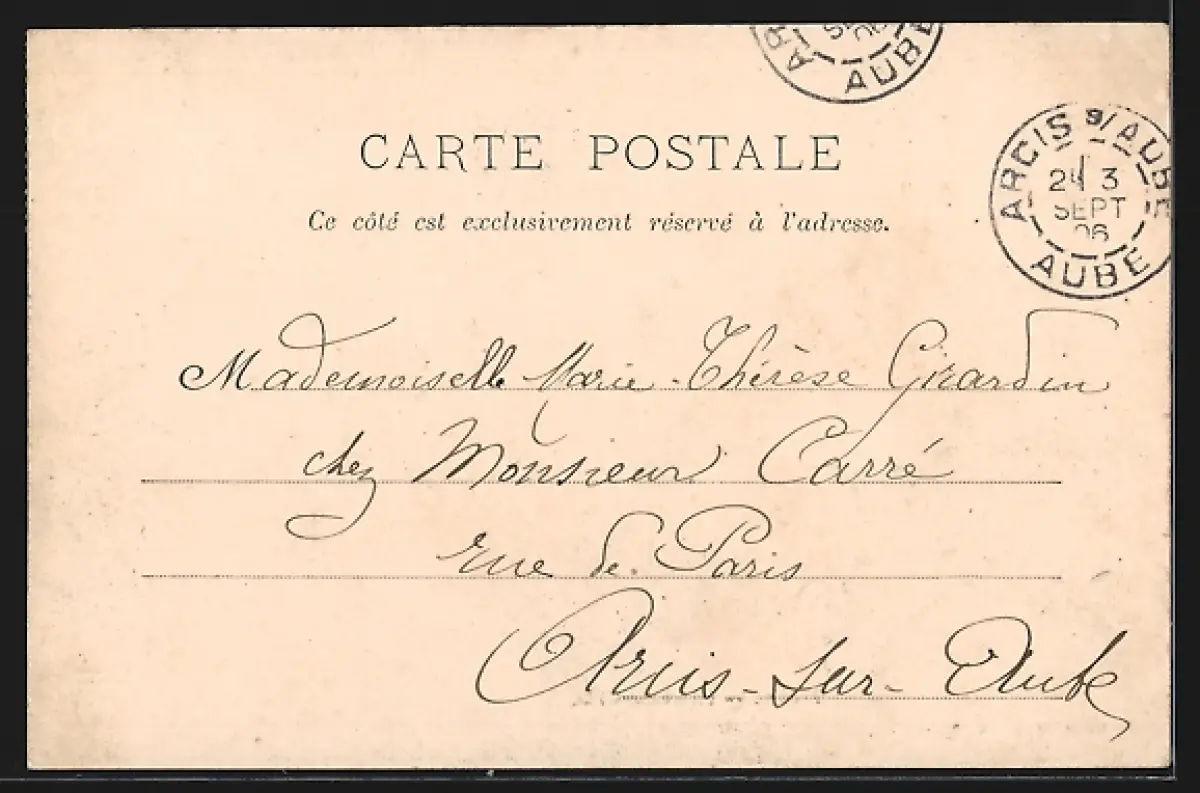 AR
SE
06
AUBE
CARTE POSTALE
ARCIS S/ AUBE
3
SEPT
06
AUBE
Ce côté est exclusivement réservé à l'adresse.
Mademoiselle Marie-Thérèse Girardin
chez Monsieur Carré
rue de Paris
Arcis-sur-Aube